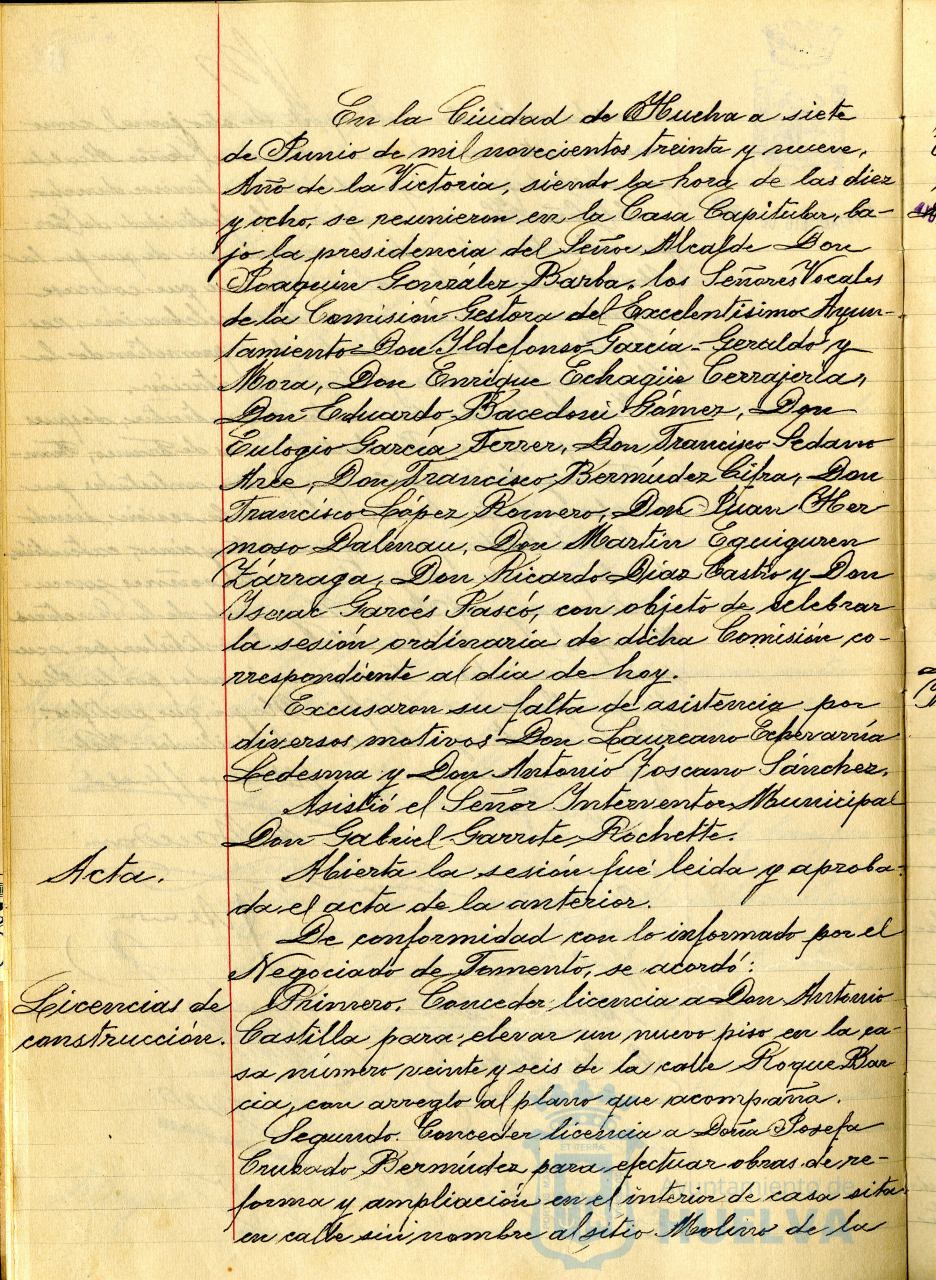 En la Ciudad de Huelva a siete
de Junio de mil novecientos treinta y nueve,
Año de la Victoria, siendo la hora de las diez
y ocho, se reunieron en la Casa Capitular, ba-
jo la presidencia del Señor Alcalde Don
Joaquín González Barba, los Señores Vocales
de la Comisión Gestora del Excelentísimo Ayun-
tamiento Don Yldefonso García-Geraldo y
Mora, Don Enrique Echagüe Cerrajería,
Don Eduardo Bacedoni Gómez, Don
Eulogio García Ferrer, Don Francisco Sedano
Arce, Don Francisco Bermúdez Cifra, Don
Francisco López Romero, Don Juan Her
moso Dalmau, Don Martín Eguiguren
Zárraga, Don Ricardo Díaz Castro y Don
Ysaac Garcés Pascó, con objeto de celebrar
la sesión ordinaria de dicha Comisión co-
rrespondiente al día de hoy.
Excusaron su falta de asistencia por
diversos motivos Don Laureano Echevarría
Ledesma y Don Antonio Toscano Sánchez.
Asistió el Señor Interventor Municipal
Don Gabriel Garrote Rochette.
Acta.
Abierta la sesión fué leida y aproba-
da el acta de la anterior.
De conformidad con lo informado por el
Negociado de Fomento, se acordó:
Licencias de
construcción.
Primero. Conceder licencia a Don Antonio
Castilla para elevar un nuevo piso en la ca-
sa número veinte y seis de la calle Roque Bar
cia, con arreglo al plano que acompaña.
Segundo. Conceder licencia a Doña Josefa
Cruzado Bermúdez para efectuar obras de re-
forma y ampliación en el interior de casa sita
en calle sin nombre al sitio Molino de la
Ayuntamiento de
HUELVA